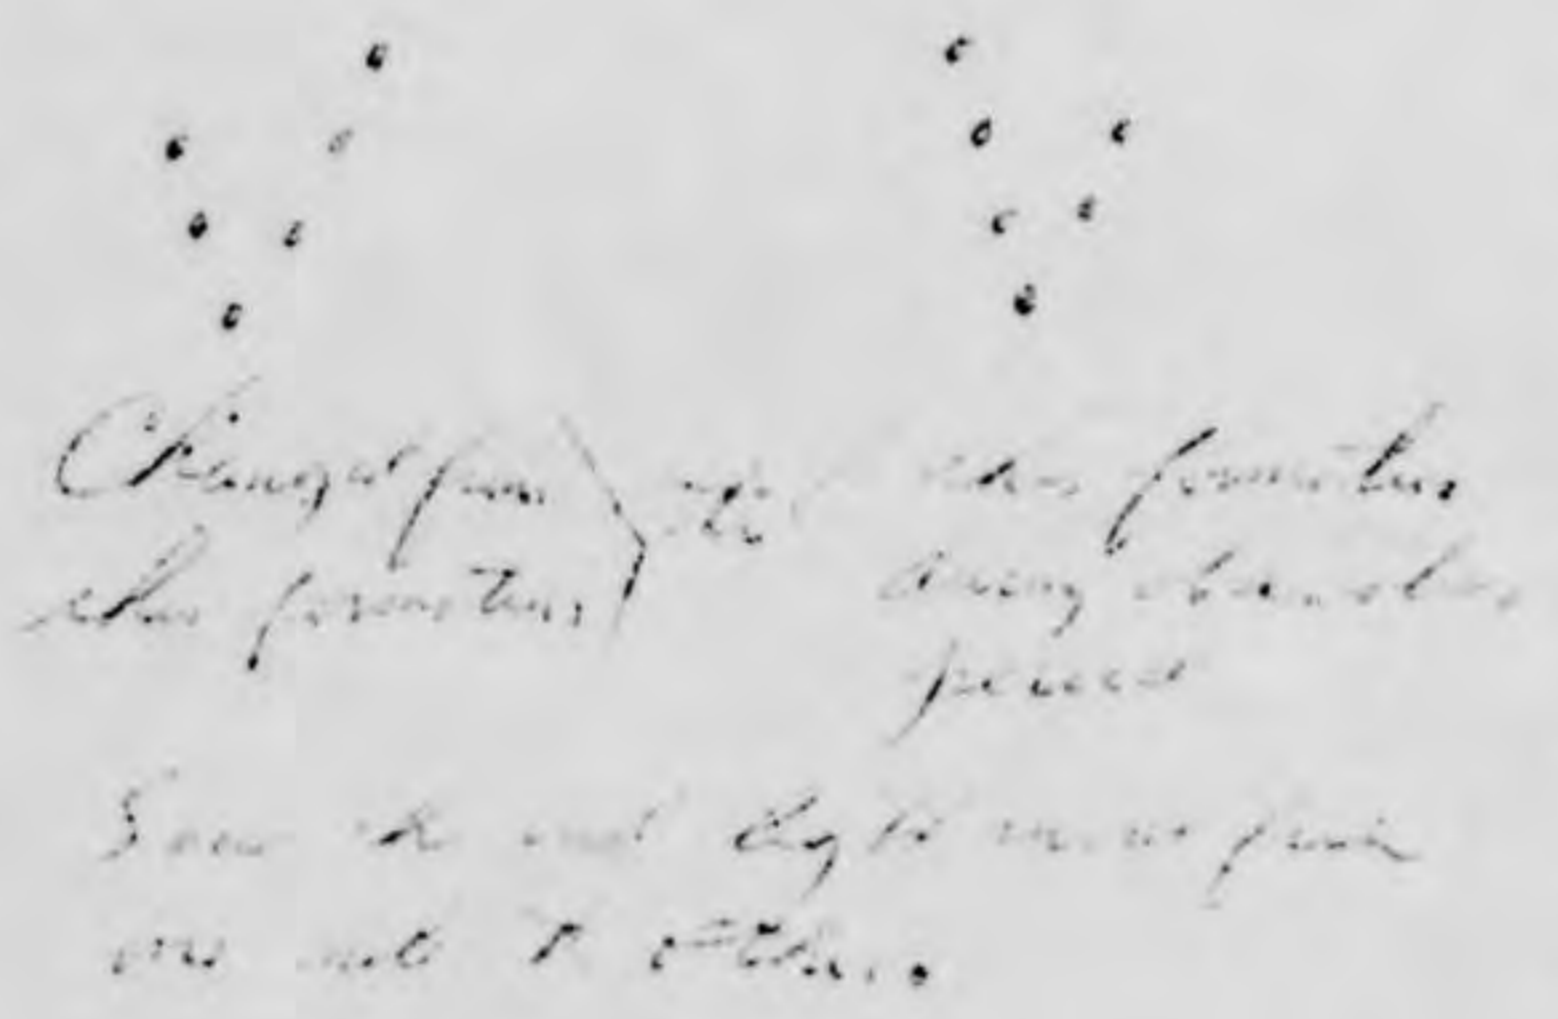 Changed from
this formation
into
this formation
during observation
period
Saw the red light move from
one side to other.